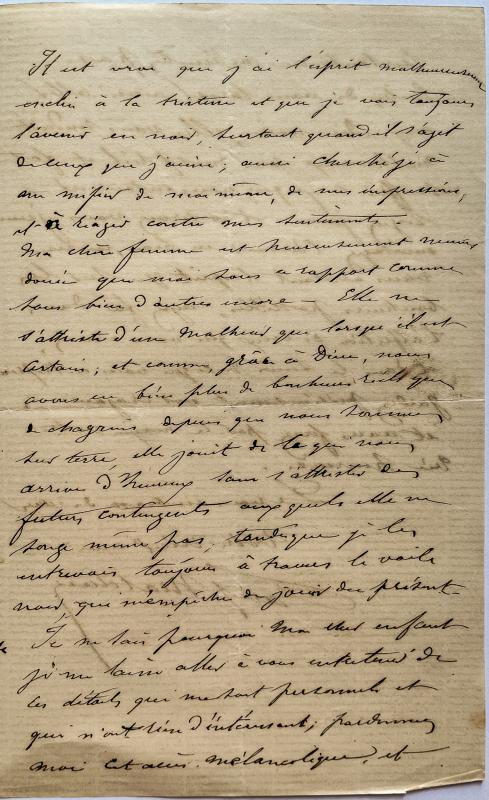 Il est vrai que j'ai l'esprit malheureusement
enclin à la tristesse et que je vois toujours
l'avenir en noir, surtout quand il s'agit
de ceux que j'aime; aussi cherché-je à
me méfier de moi même, de mes impressions,
et à réagir contre mes sentiments.
Ma chère femme est heureusement mieux
douée que moi sous ce rapport comme
sous bien d'autres encore — Elle ne
s'attriste d'un malheur que lorsqu'il est
certain; et comme, grâce à Dieu, nous
avons eu bien plus de bonheurs réels que
de chagrins depuis que nous sommes
sur terre, elle jouit de ce que nous
arrive d'heureux sans s'attrister des
futurs contingents auxquels elle ne
songe même pas, tandis que je les
entrevois toujours à travers le voile
noir, qui m'empêche de jouir du présent.
Je ne sais pourquoi ma chère enfant
je me laisse aller à vous entretenir de
ces détails qui me sont personnels et
qui n'ont rien d'intéressant; pardonnez
moi cet accès mélancolique, et